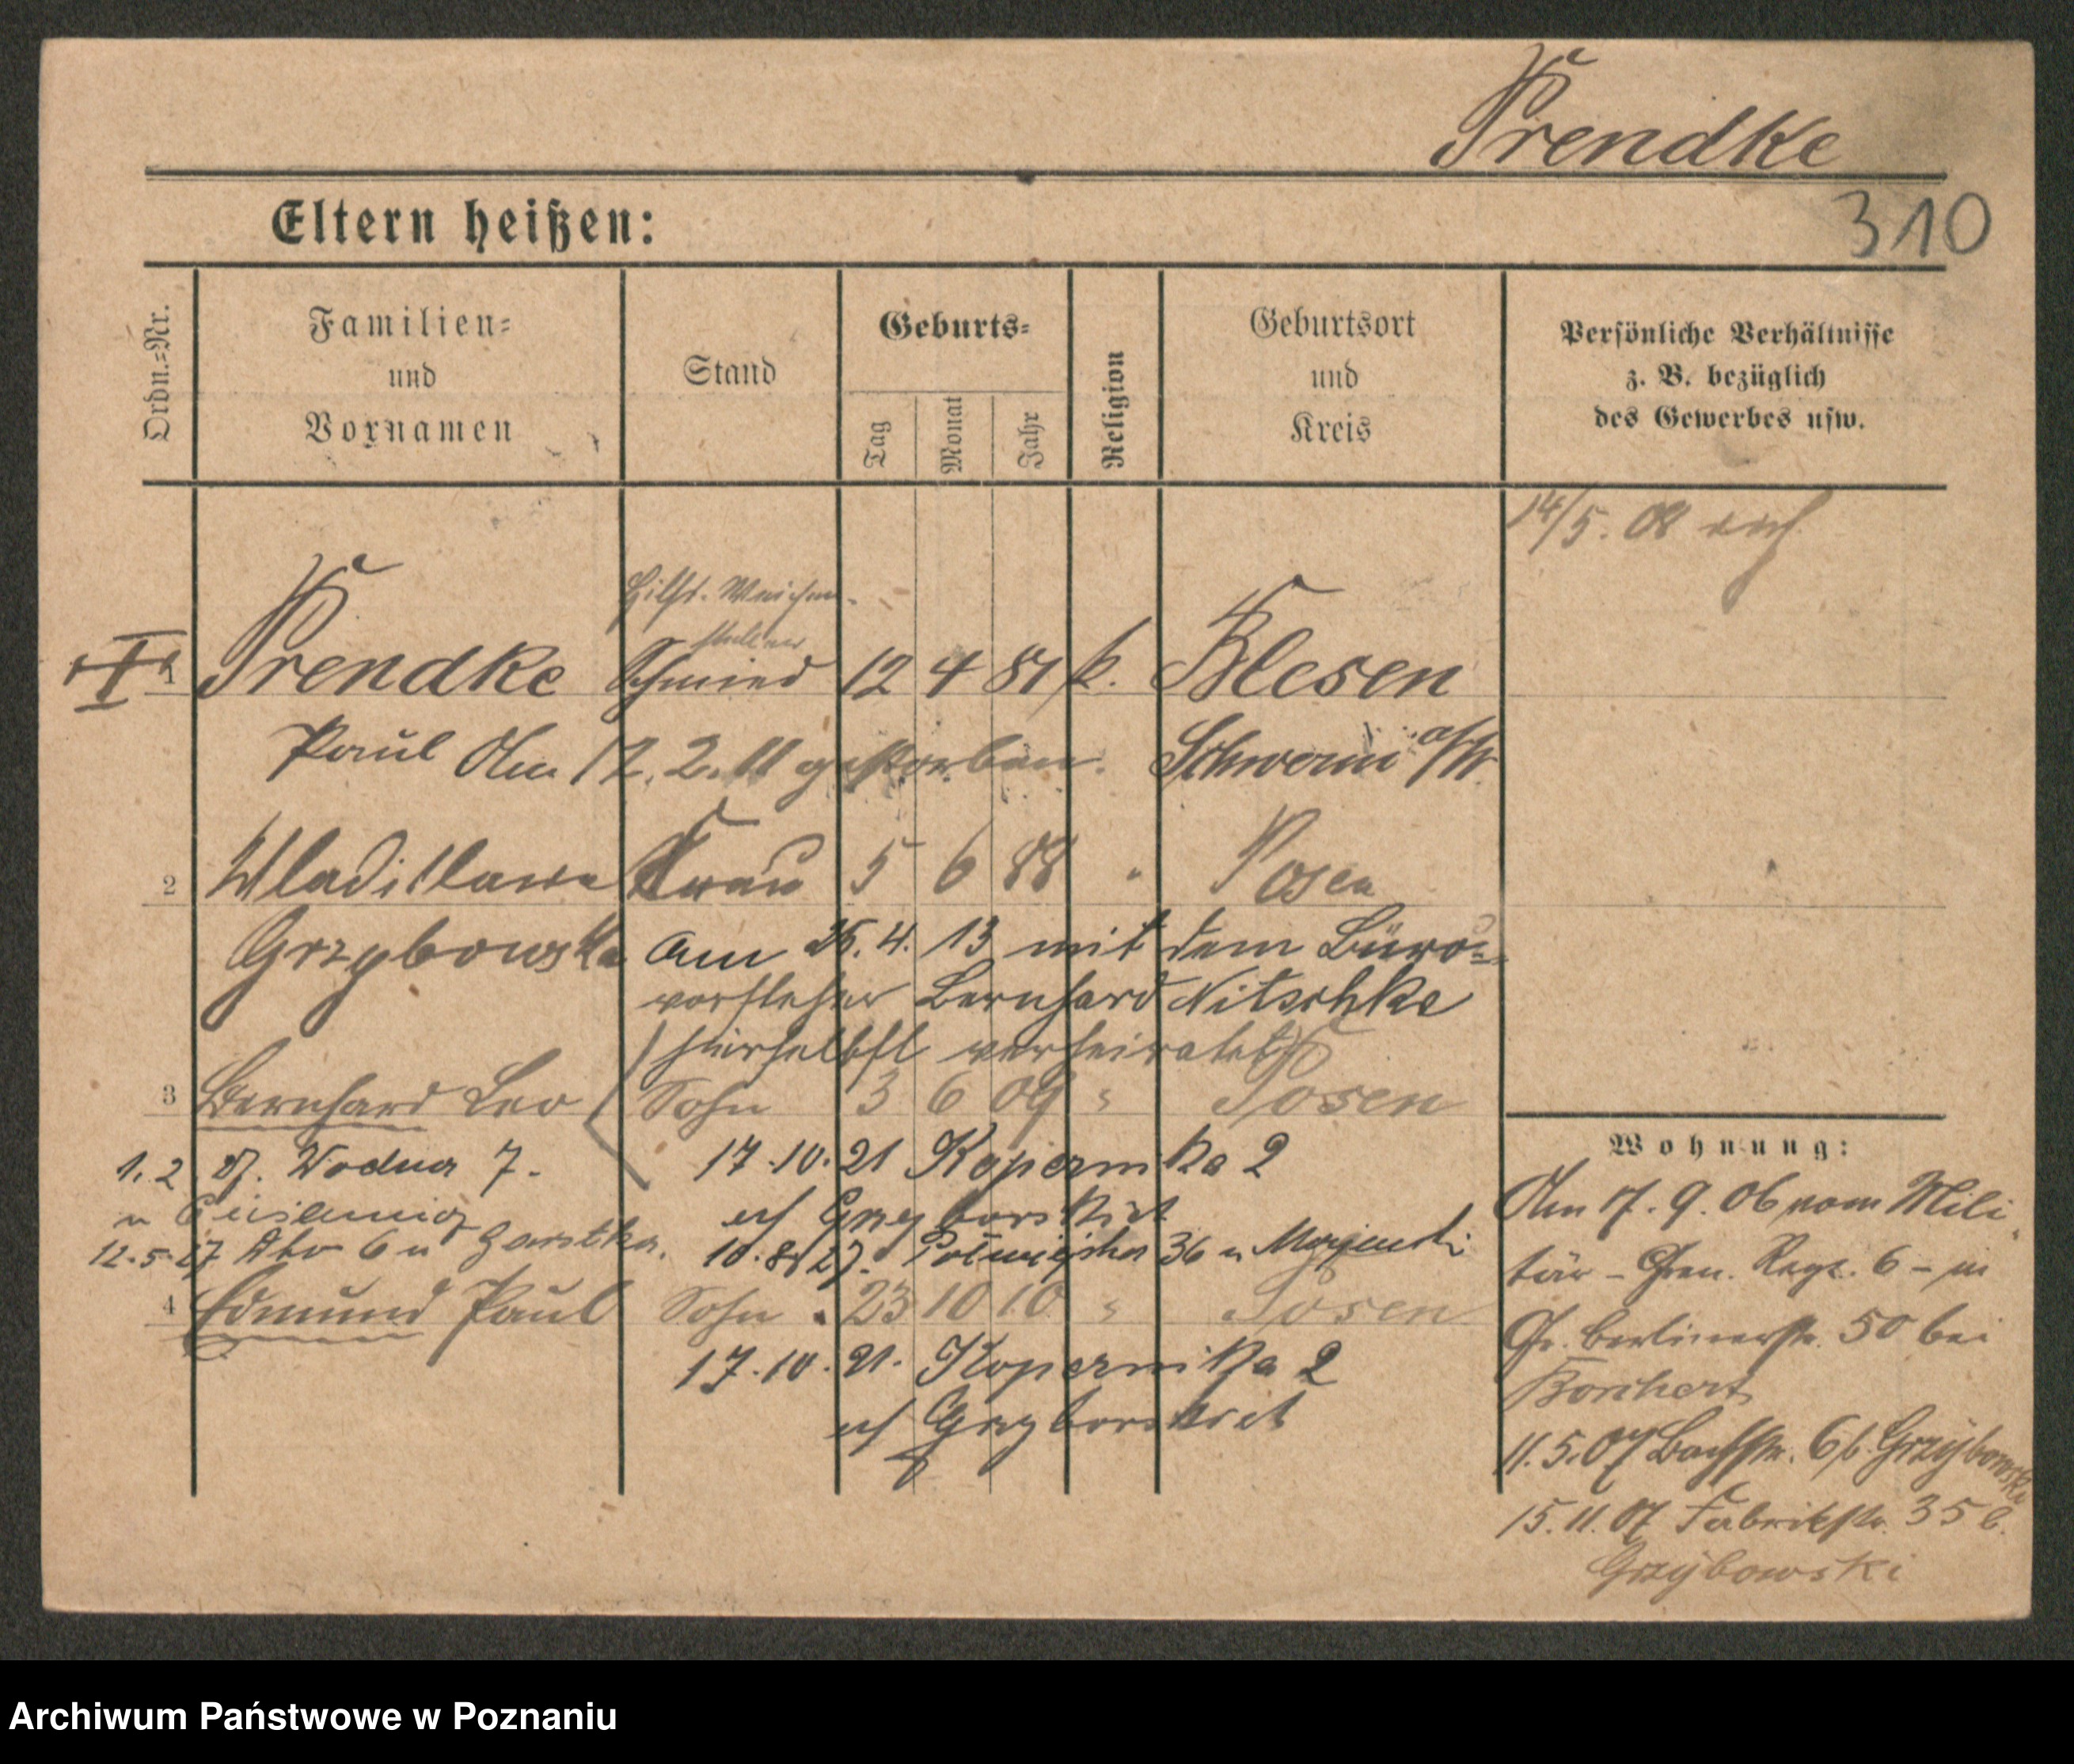 Prendke
310
Eltern heißen:
Ordn.=Nr.
Familien=
und
Vornamen
Stand
Geburts=
Tag
Monat
Jahr
Religion
Geburtsort
und
Kreis
Persönliche Verhältnisse
z. B. bezüglich
des Gewerbes usw.
14/5. 08
Hilfs. Weichen-
steller
1 Prendke Schmied 12 4 81 k. Blesen
Paul Am 12. 2. 11 gestorben. Schwerin a/W.
2 Wladislawa Frau 5 6 88 " Posen
Grzybowska am 25. 4. 13 mit dem Büro=
vorsteher Bernhard Nitschke
hierselbst verheiratet
3 Bernhard Leo Sohn 3 6 09 " Posen
1. 2. 27. Wodna 7. 17.10.21 Kopernika 2
12.5.27 6 u Garstka. 10.8.27. Półwiejska 36 u
4 Edmund Paul Sohn 23 10 10 " Posen
17.10.21. Kopernika 2
Wohnung:
Am 17. 9. 06 vom Mili
tär - Gren. Regt. 6 - in
Gr. Berlinerstr. 50 bei
Borchert
11.5.07 Bachstr. 6 b. Grzybowski
15.11.07 Fabrikstr. 35 b.
Grzybowski
Archiwum Państwowe w Poznaniu